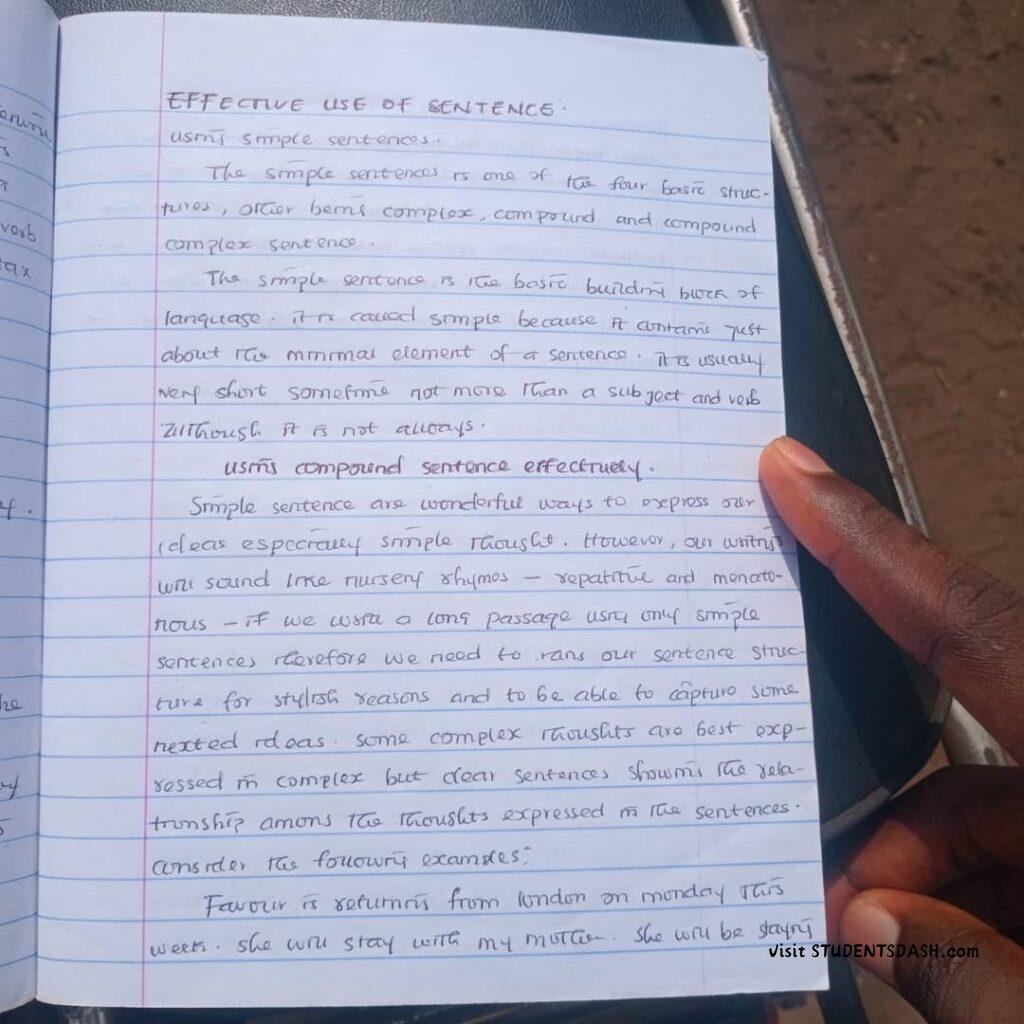 EFFECTIVE USE OF SENTENCE.
using simple sentences.
The simple sentences is one of the four basic struc-
tures, other being complex, compound and compound
complex sentence.
The simple sentence is the basic building block of
language. it is called simple because it contains just
about the minimal element of a sentence. it is usually
very short sometime not more than a subject and verb
although it is not always.
using compound sentence effectively.
Simple sentence are wonderful ways to express our
ideas especially simple thought. However, our writing
will sound like nursery rhymes - repatitive and menoto-
nous - if we write a long passage using only simple
sentences therefore we need to our sentence struc-
ture for stylish reasons and to be able to capture some
nexted ideas. some complex thoughts are best exp-
ressed in complex but clear sentences showing the rela-
tionship among the thoughts expressed in the sentences.
consider the following examples:
Favour is returning from london on monday this
week. she will stay with my mother. she will be staying
Visit STUDENTSDASH.com
verb
tax